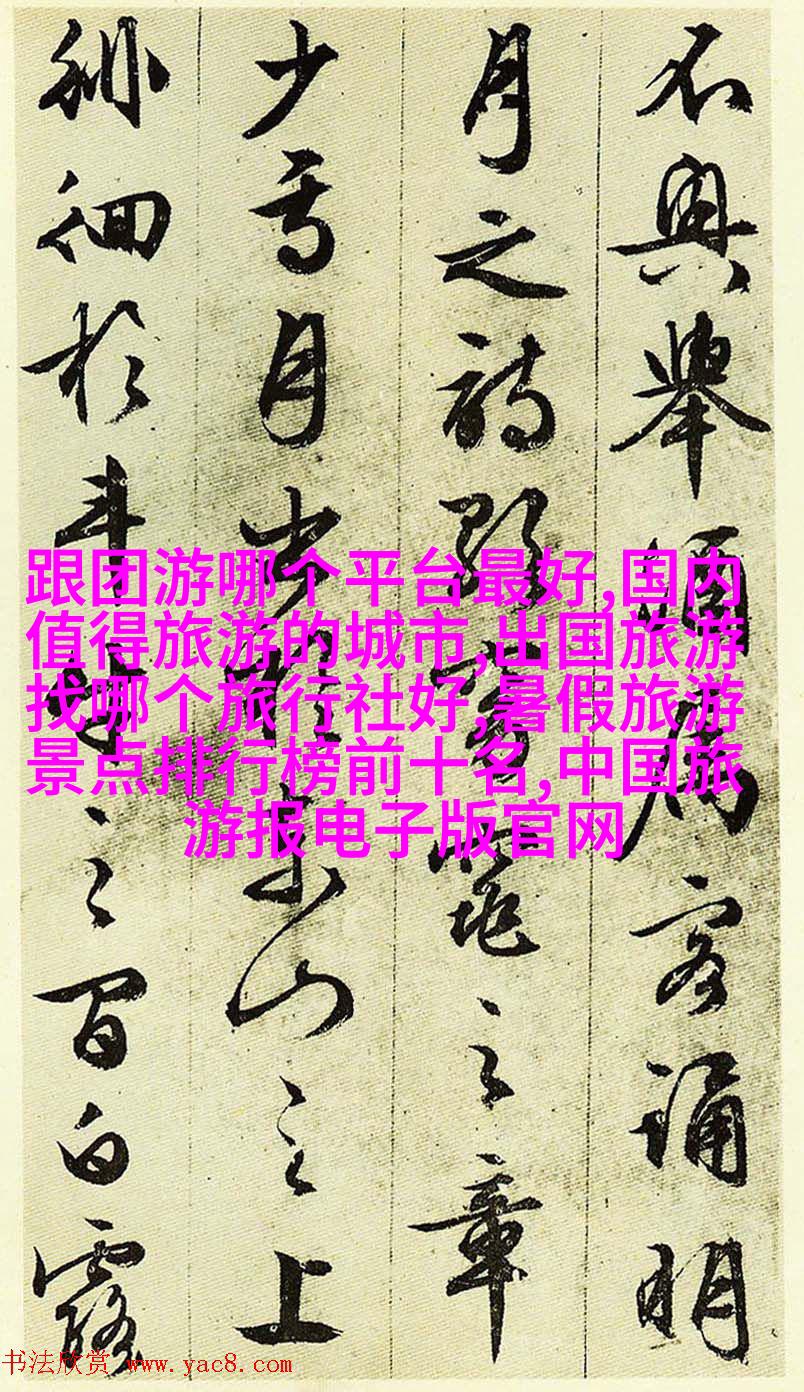 不興舉酒屬客誦明
月之詩歌窈窕之章
少焉月出於東山之上
徘徊於斗牛之間白露
跟团游哪个平台最好,国内
值得旅游的城市,出国旅游
找哪个旅行社好,暑假旅游
景点排行榜前十名,中国旅
游报电子版官网
书法欣赏 www.yac8.com